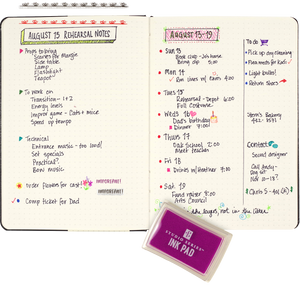 AUGUST 15 REHEARSAL NOTES
Props to bring
Scarves for Margie
Side table
Lamp
Flashlight
Teapot
To work on
Transition - 1+2
Energy lines
Improv game - Cats + mice
Speed up tempo
Technical
Entrance music - too loud!
Set specials
Practical?
Bows music
order flowers for cast!
IMPORTANT!
IMPORTANT!
Comp ticket for Dad
AUGUST 13-19
Sun 13
Book club - Joh home
Bring dip 5:00
Mon 14
Run lines w/ Karen 9:00
Tues 15
Rehearsal - Depot 6:00
Full Costume
Weds 16
Dad's birthday
Dinner 7:00
Thurs 17
Oak School 2:00
Meet teacher
Fri 18
Drinks w/ Heather 9:30
Sat 19
Fund raiser 9:00
Arts Council
the layers, not in the
To do
Pick up dry cleaning
Plan meals for kids
Light bulbs!
Return Shoes
Stern's Bakery
Contact
Sound designer
Call Andy-
Chris S
STUDIO SERIES
INK PAD